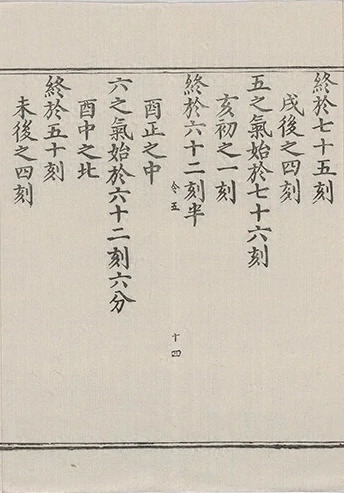 終於七十五刻
戌後之四刻
五之氣始於七十六刻
亥初之一刻
終於六十二刻半
令五
十四
酉正之中
六之氣始於六十二刻六分
酉中之北
終於五十刻
未後之四刻